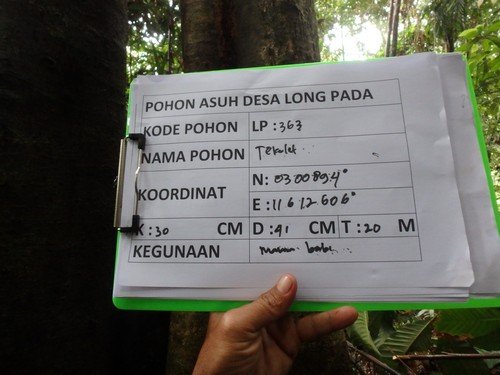 POHON ASUH DESA LONG PADA
KODE POHON LP : 363
NAMA POHON
KOORDINAT
N: 0300894°
E : 11612606°
K : 30 CM D : 41 CM T : 20 M
KEGUNAAN